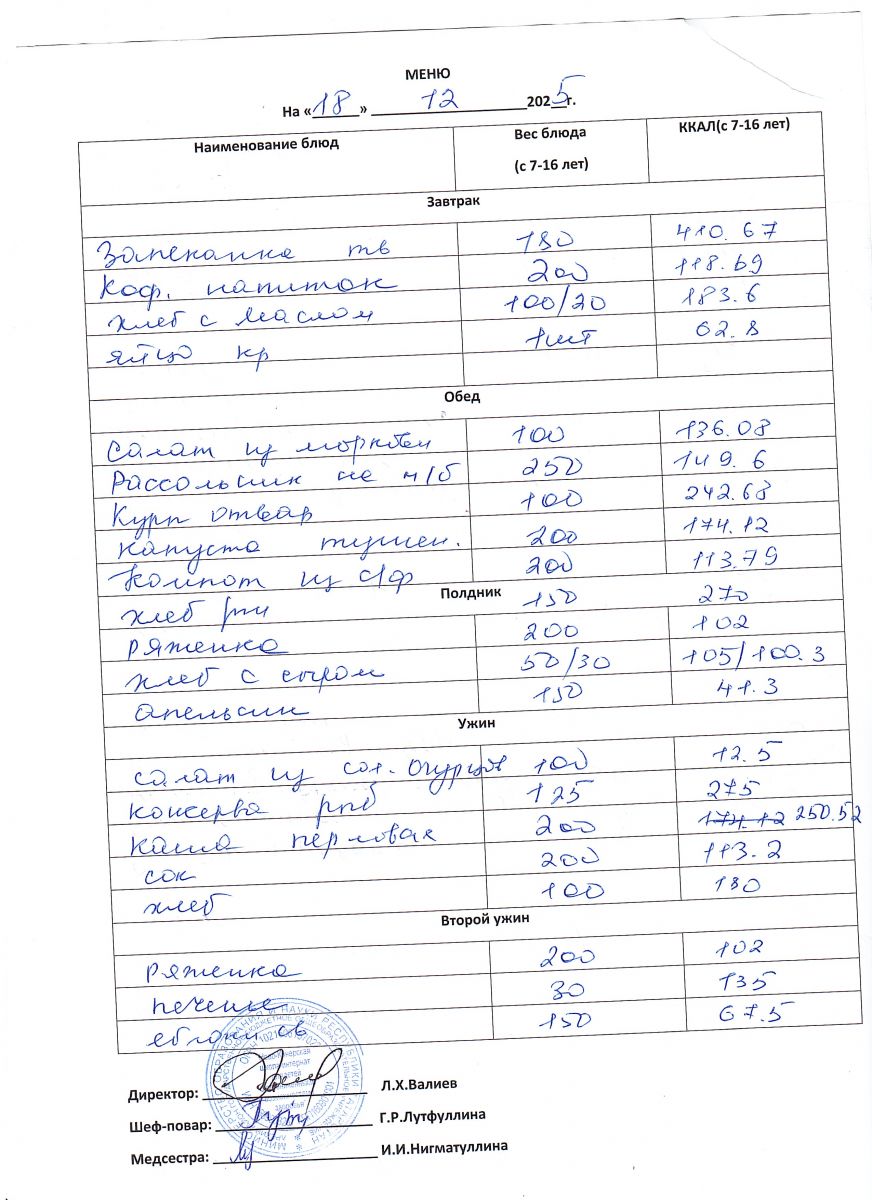 МЕНЮ
На «18» 12 2025г.
Наименование блюд Вес блюда (с 7-16 лет) ККАЛ(с 7-16 лет)
Завтрак
Запеканка тв 180 410.67
Коф. напиток 200 118.69
хлеб с маслом 100/20 183.6
яйцо кр 1шт 62.8
Обед
Салат из моркови 100 136.08
Рассольник на м/б 250 149.6
Куры отвар 100 242.68
капуста тушен. 200 174.12
Компот из с/ф 200 113.79
Полдник
хлеб рж 150 270
ряженка 200 102
хлеб с сыром 50/30 105/100.3
апельсин 150 41.3
Ужин
салат из сол. огурцов 100 12.5
консерва рыб 125 275
каша перловая 200 174.12 250.52
сок 200 113.2
хлеб 100 180
Второй ужин
ряженка 200 102
печенье 30 135
яблоки св 150 67.5
Директор: Л.Х.Валиев
Шеф-повар: Г.Р.Лутфуллина
Медсестра: И.И.Нигматуллина